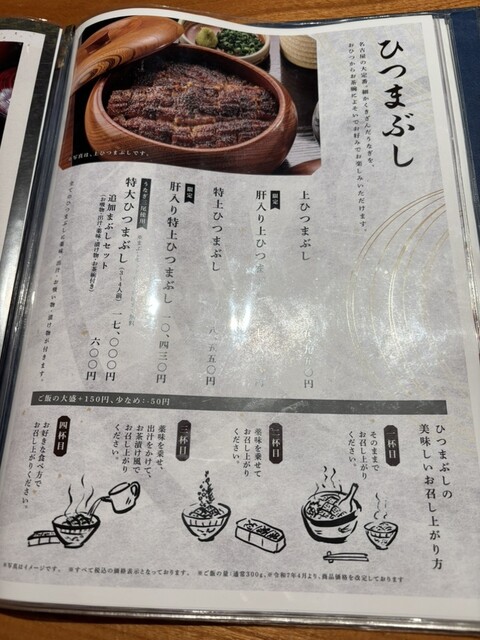 ひつまぶし
名古屋の大定番。細かくきざんだうなぎを、
おひつからお茶碗によそいでお好みでお楽しみいただけます。
※写真は、上ひつまぶしです。
上ひつまぶし
円
限定
肝入り上ひつま
特上ひつまぶし
円
限定
肝入り特上ひつまぶし
一〇、四三〇円
うなぎ二尾使用
特大ひつまぶし(3~4人前)
一七、〇〇〇円
追加まぶしセット
(お吸物・出汁・薬味・漬け物・お茶碗付き)
六〇〇円
ご飯の大盛+150円、少なめ:-50円
ひつまぶしの
美味しいお召し上がり方
一杯目
そのままで
お召し上がり
ください。
二杯目
薬味を乗せて
お召し上がり
ください。
三杯目
薬味を乗せ、
出汁をかけて、
お茶漬け風で
お召し上がり
ください。
四杯目
お好きな食べ方で
お召し上がりください。
※写真はイメージです。 ※すべて税込の価格表示となっております。 ※ご飯の量:通常300g、※令和7年4月より、商品価格を改定しております